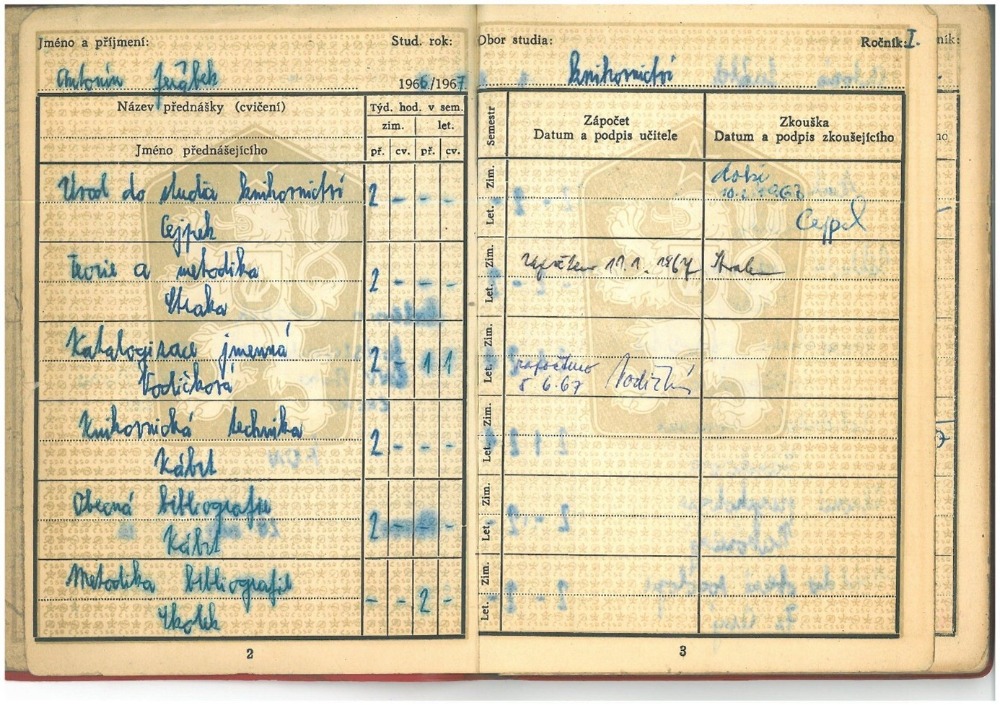 Jméno a příjmení: Stud. rok:
Antonín Jeřábek 1966/1967
Název přednášky (cvičení) Týd. hod. v sem.
zim. let.
Jméno přednášejícího př. cv. př. cv.
Úvod do studia knihovnictví 2 - - -
Cejpek
Teorie a metodika 2 - - -
Straka
Katalogisace jmenná 2 - 1 1
Vodičková
Knihovnická technika 2 - - -
Kábrt
Obecná bibliografie 2 - -
Kábrt
Metodika bibliografie - - 2 -
Skolek
2
Obor studia: Ročník: I.
knihovnictví
Semestr
Zápočet
Datum a podpis učitele
Zkouška
Datum a podpis zkoušejícího
Zim.
Let.
dobře
1967
Cejpek
Zim.
Let.
započteno 11.1.1967 Straka
Zim.
Let.
Započteno
5 6.67 Vodičková
Zim.
Let.
Zim.
Let.
Zim.
Let.
3
ník: